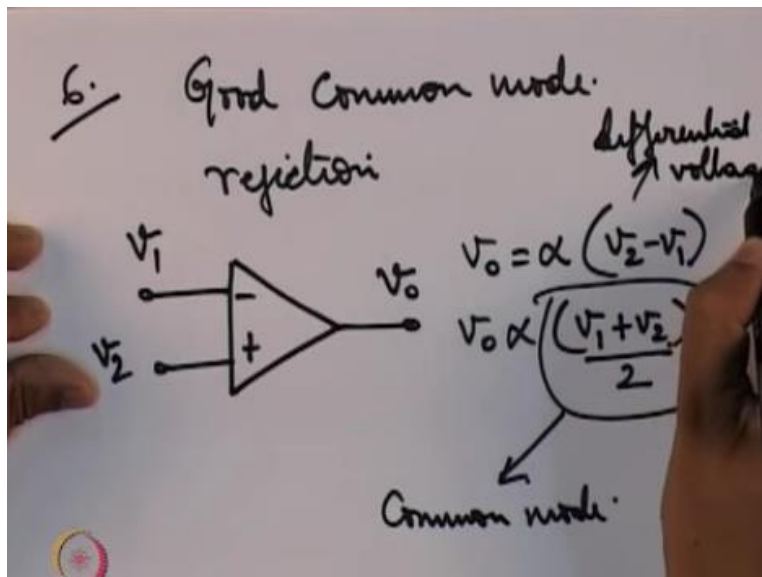 6. Good Common mode.
rejection
differential
voltag
V1
V2
-
+
Vo
Vo = α (V2-V1)
Vo α (V1+V2)/2
Common mode.